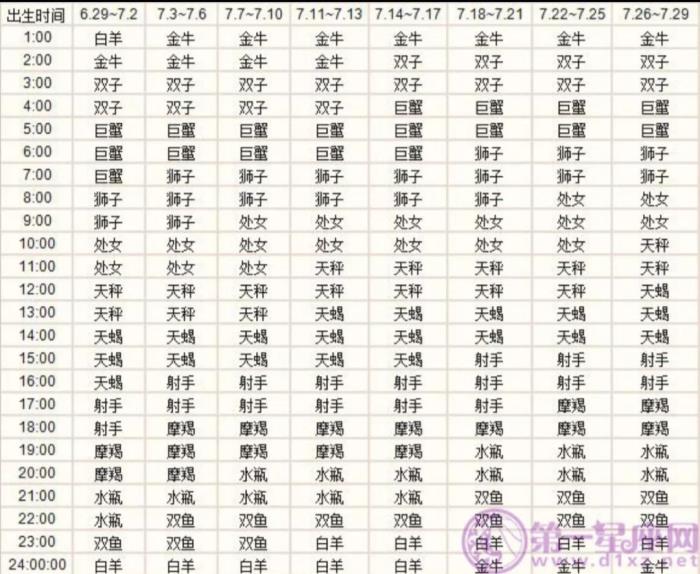 出生时间 6.29~7.2 7.3~7.6 7.7~7.10 7.11~7.13 7.14~7.17 7.18~7.21 7.22~7.25 7.26~7.29
1:00 白羊 金牛 金牛 金牛 金牛 金牛 金牛 金牛
2:00 金牛 金牛 金牛 金牛 双子 双子 双子 双子
3:00 双子 双子 双子 双子 双子 双子 双子 双子
4:00 双子 双子 双子 双子 巨蟹 巨蟹 巨蟹 巨蟹
5:00 巨蟹 巨蟹 巨蟹 巨蟹 巨蟹 巨蟹 巨蟹 巨蟹
6:00 巨蟹 巨蟹 巨蟹 巨蟹 巨蟹 狮子 狮子 狮子
7:00 巨蟹 狮子 狮子 狮子 狮子 狮子 狮子 狮子
8:00 狮子 狮子 狮子 狮子 狮子 狮子 处女 处女
9:00 狮子 狮子 处女 处女 处女 处女 处女 处女
10:00 处女 处女 处女 处女 处女 处女 处女 天秤
11:00 处女 处女 处女 天秤 天秤 天秤 天秤 天秤
12:00 天秤 天秤 天秤 天秤 天秤 天秤 天秤 天蝎
13:00 天秤 天秤 天秤 天蝎 天蝎 天蝎 天蝎 天蝎
14:00 天蝎 天蝎 天蝎 天蝎 天蝎 天蝎 天蝎 天蝎
15:00 天蝎 天蝎 天蝎 天蝎 天蝎 射手 射手 射手
16:00 天蝎 射手 射手 射手 射手 射手 射手 射手
17:00 射手 射手 射手 射手 射手 射手 摩羯 摩羯
18:00 射手 摩羯 摩羯 摩羯 摩羯 摩羯 摩羯 摩羯
19:00 摩羯 摩羯 摩羯 摩羯 摩羯 水瓶 水瓶 水瓶
20:00 摩羯 摩羯 水瓶 水瓶 水瓶 水瓶 水瓶 水瓶
21:00 水瓶 水瓶 水瓶 水瓶 水瓶 双鱼 双鱼 双鱼
22:00 水瓶 双鱼 双鱼 双鱼 双鱼 双鱼 双鱼 双鱼
23:00 双鱼 双鱼 双鱼 白羊 白羊 白羊 白羊 白羊
24:00:00 白羊 白羊 白羊 白羊 白羊 金牛 金牛 金牛
第一星座网
www.d1xz.net